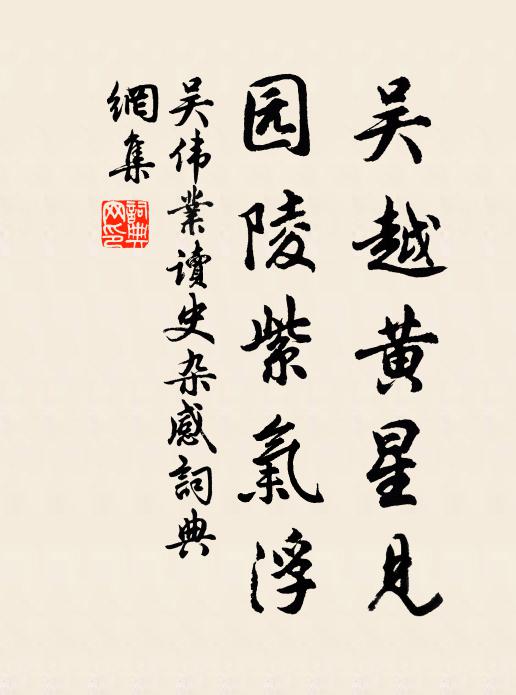 吴越黄星見
园陵紫氣浮
吴伟業讀史杂感詞典
網集
詞典网印